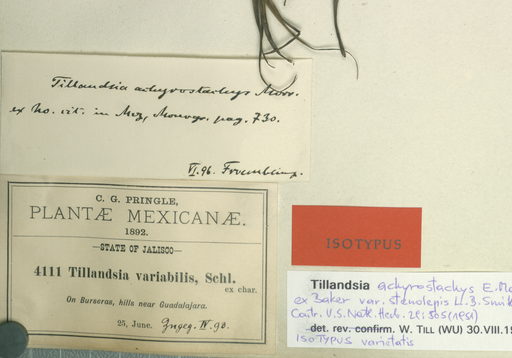 Tillandsia achyrostachys Morr.
ex No. cit. in Mez, Monogr. pag. 730.
VI. 96.
C. G. PRINGLE,
PLANTÆ MEXICANÆ.
1892.
STATE OF JALISCO
4111 Tillandsia variabilis, Schl.
ex char.
On Burseras, hills near Guadalajara.
25, June.
ISOTYPUS
Tillandsia achyrostachys E. Mo
ex Baker var. stenolepis L.B. Smit
Contr. U.S. Natl. Herb. 29: 305 (1951)
det. rev. confirm. W. TILL (WU) 30.VIII.19
ISOTYPUS varietatis